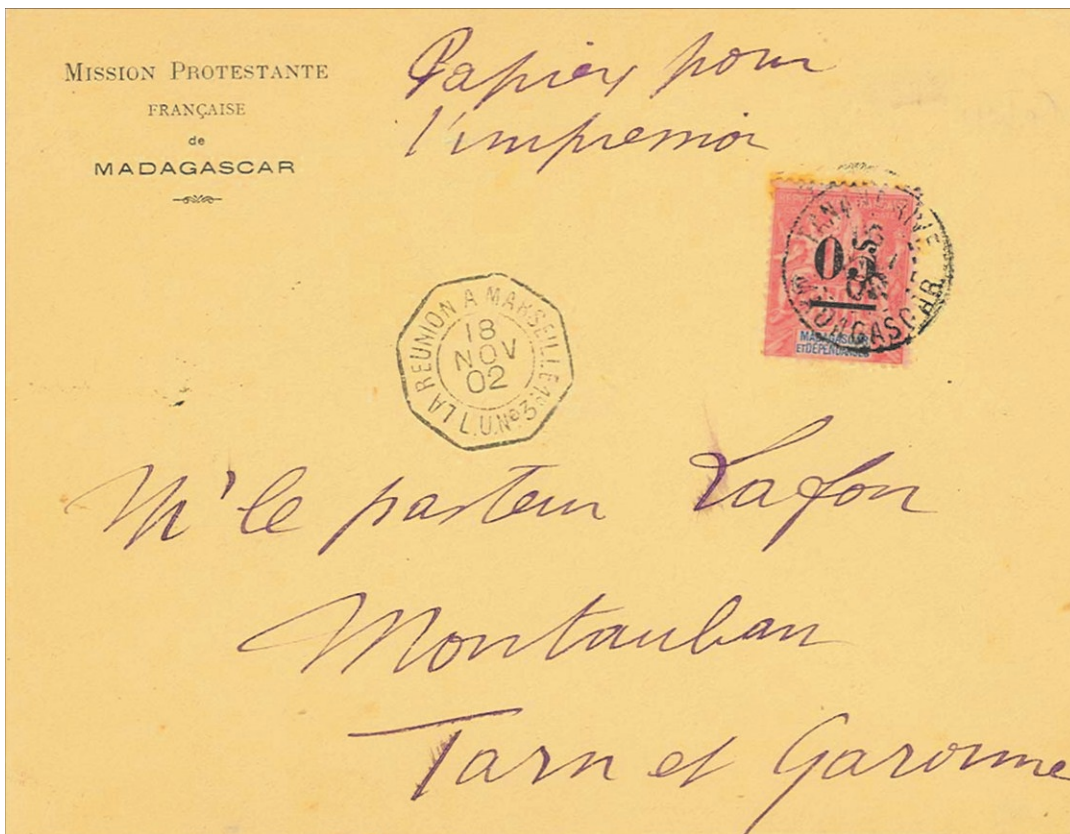 MISSION PROTESTANTE
FRANÇAISE
de
MADAGASCAR
Papiers pour
l'impression
TANANARIVE
05
MADAGASCAR
MADAGASCAR
ET DÉPENDANCES
LA REUNION A MARSEILLE
18
NOV
02
L.U. Nº3
Mr le pasteur Lafon
Montauban
Tarn et Garonne